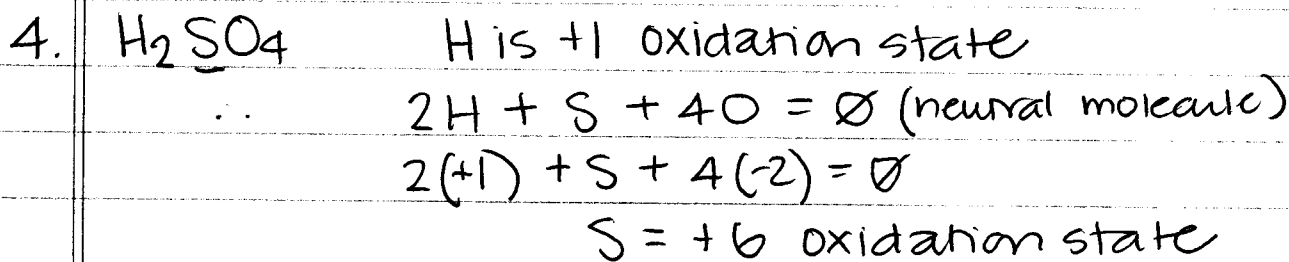 4. H₂SO₄ H is +1 oxidation state
2H + S + 4O = Ø (neutral molecule)
2(+1) + S + 4(-2) = Ø
S = +6 oxidation state